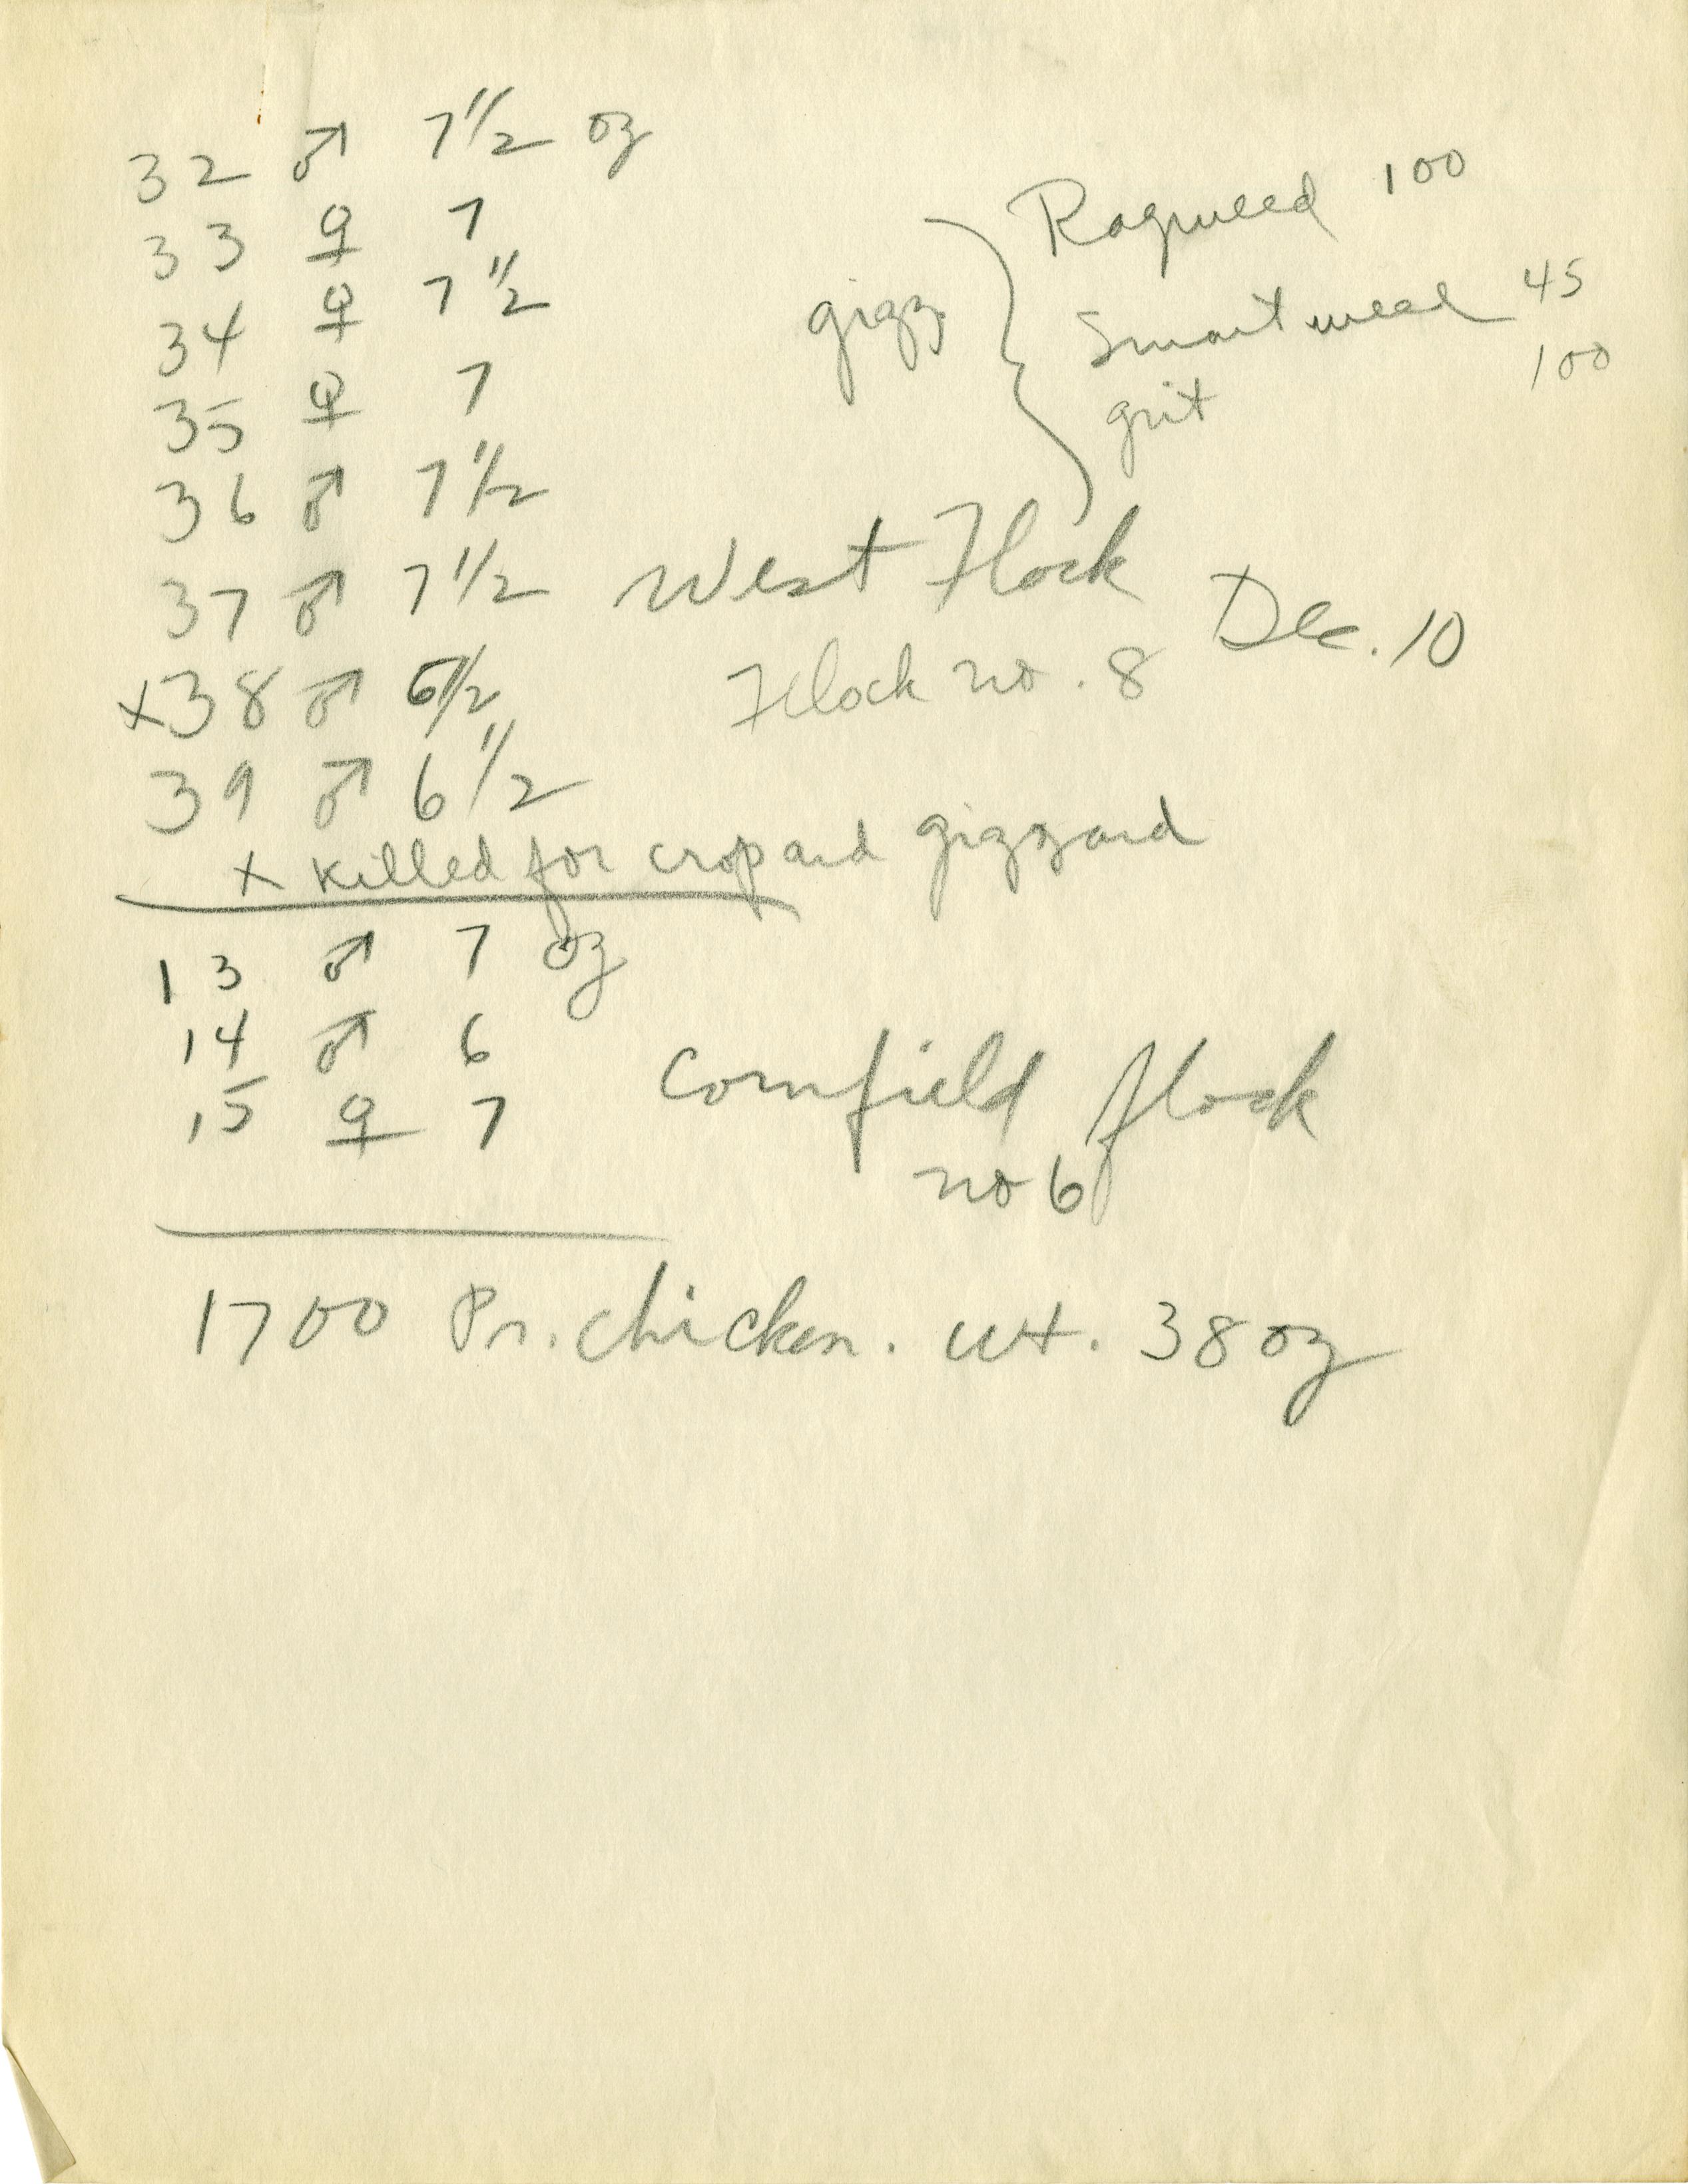 32 ♂ 7 1/2 oz
33 ♀ 7
34 ♀ 7 1/2
35 ♀ 7
36 ♂ 7 1/2
37 ♂ 7 1/2
x38 ♂ 6 1/2
39 ♂ 6 1/2
x killed for crop and gizzard
gizz. { Ragweed 100
Smartweed 45
grit 100
West Flock
Dec. 10
Flock no. 8
13 ♂ 7 oz
14 ♂ 6
15 ♀ 7
Cornfield flock
no 6
1700 Pr. chicken. wt. 38 oz